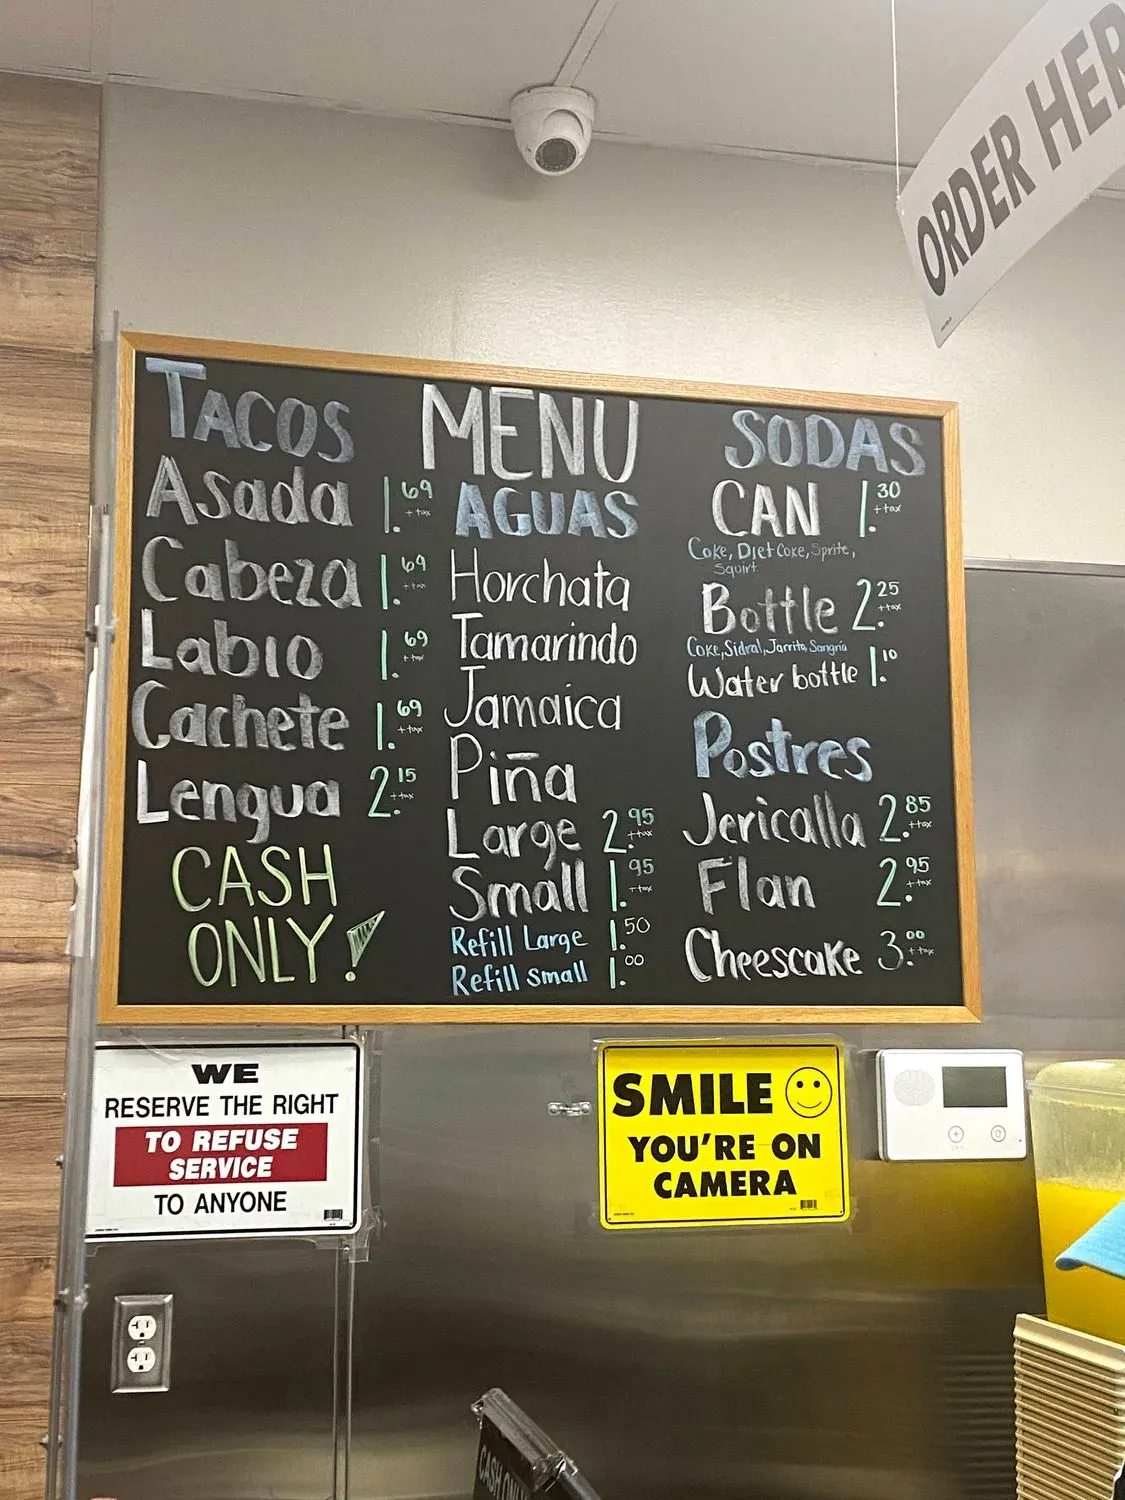 ORDER HER
TACOS
Asada 1.69 + tax
Cabeza 1.69 + tax
Labio 1.69 + tax
Cachete 1.69 + tax
Lengua 2.15 + tax
CASH
ONLY!
MENU
AGUAS
Horchata
Tamarindo
Jamaica
Piña
Large 2.95 + tax
Small 1.95 + tax
Refill Large 1.50
Refill Small 1.00
SODAS
CAN 1.30 + tax
Coke, Diet Coke, Sprite,
Squirt
Bottle 2.25 + tax
Coke, Sidral, Jarrito, Sangria
Water bottle 1.10
Postres
Jericalla 2.85 + tax
Flan 2.95 + tax
Cheescake 3.00 + tax
WE
RESERVE THE RIGHT
TO REFUSE
SERVICE
TO ANYONE
SMILE
YOU'RE ON
CAMERA
CASH ONLY